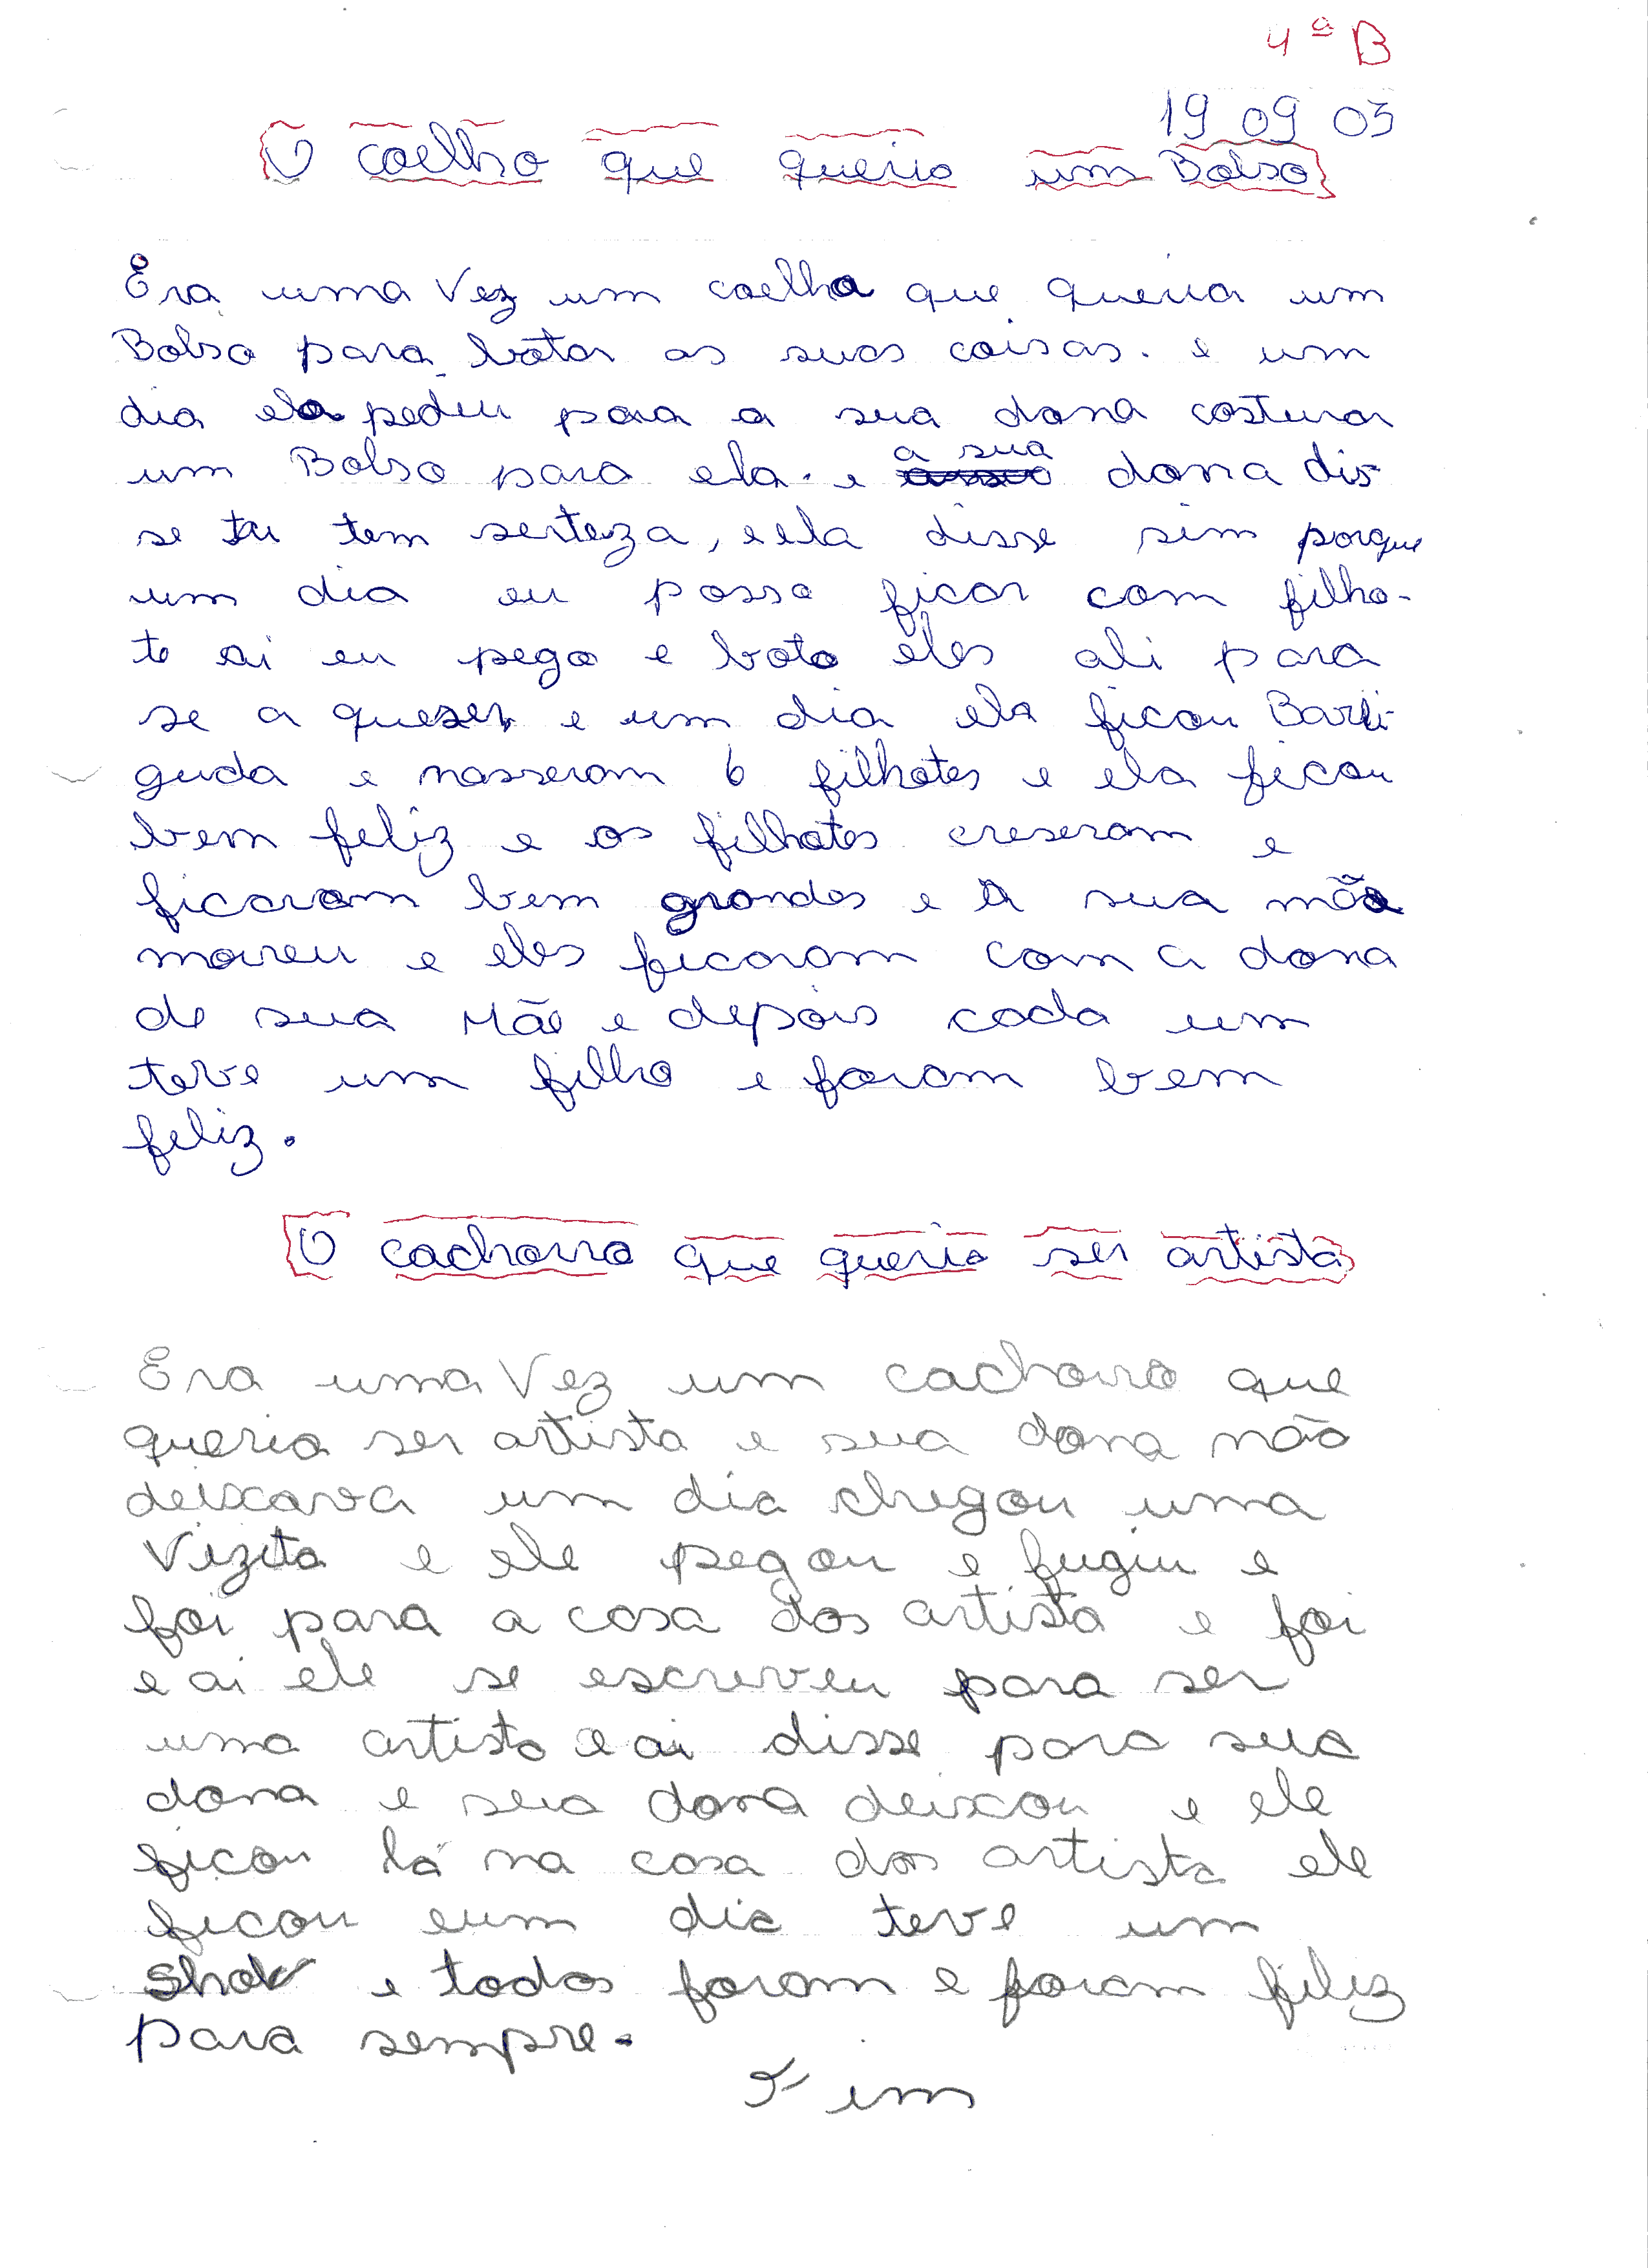 4ª B
19 09 03
O coelho que queria um Bolso
Era uma Vez um coelha que queria um
Bolso para botar as suas coisas. e um
dia ela pediu para a sua dona costurar
um Bolso para ela. e a sua dona dis
se tu tem serteza, e ela disse sim porque
um dia eu posso ficar com filho-
te ai eu pego e boto eles ali para
se a queser e um dia ela ficou Barri-
guda e nasseram 6 filhotes e ela ficou
bem feliz e os filhotes creseram e
ficaram bem grandes e a sua mãe
moreu e eles ficaram com a dona
de sua Mãe e depois cada um
teve um filho e foram bem
feliz.
O cachorro que queria ser artista
Era uma Vez um cachorro que
queria ser artista e sua dona não
deixava um dia chegou uma
Vizita e ele pegou e fugiu e
foi para a casa dos artista e foi
e ai ele se escreveu para ser
uma artista e ai disse para sua
dona e sua dona deixou e ele
ficou lá na casa dos artista ele
ficou eum dia teve um
Show e todos foram e foram feliz
para sempre.
Fim